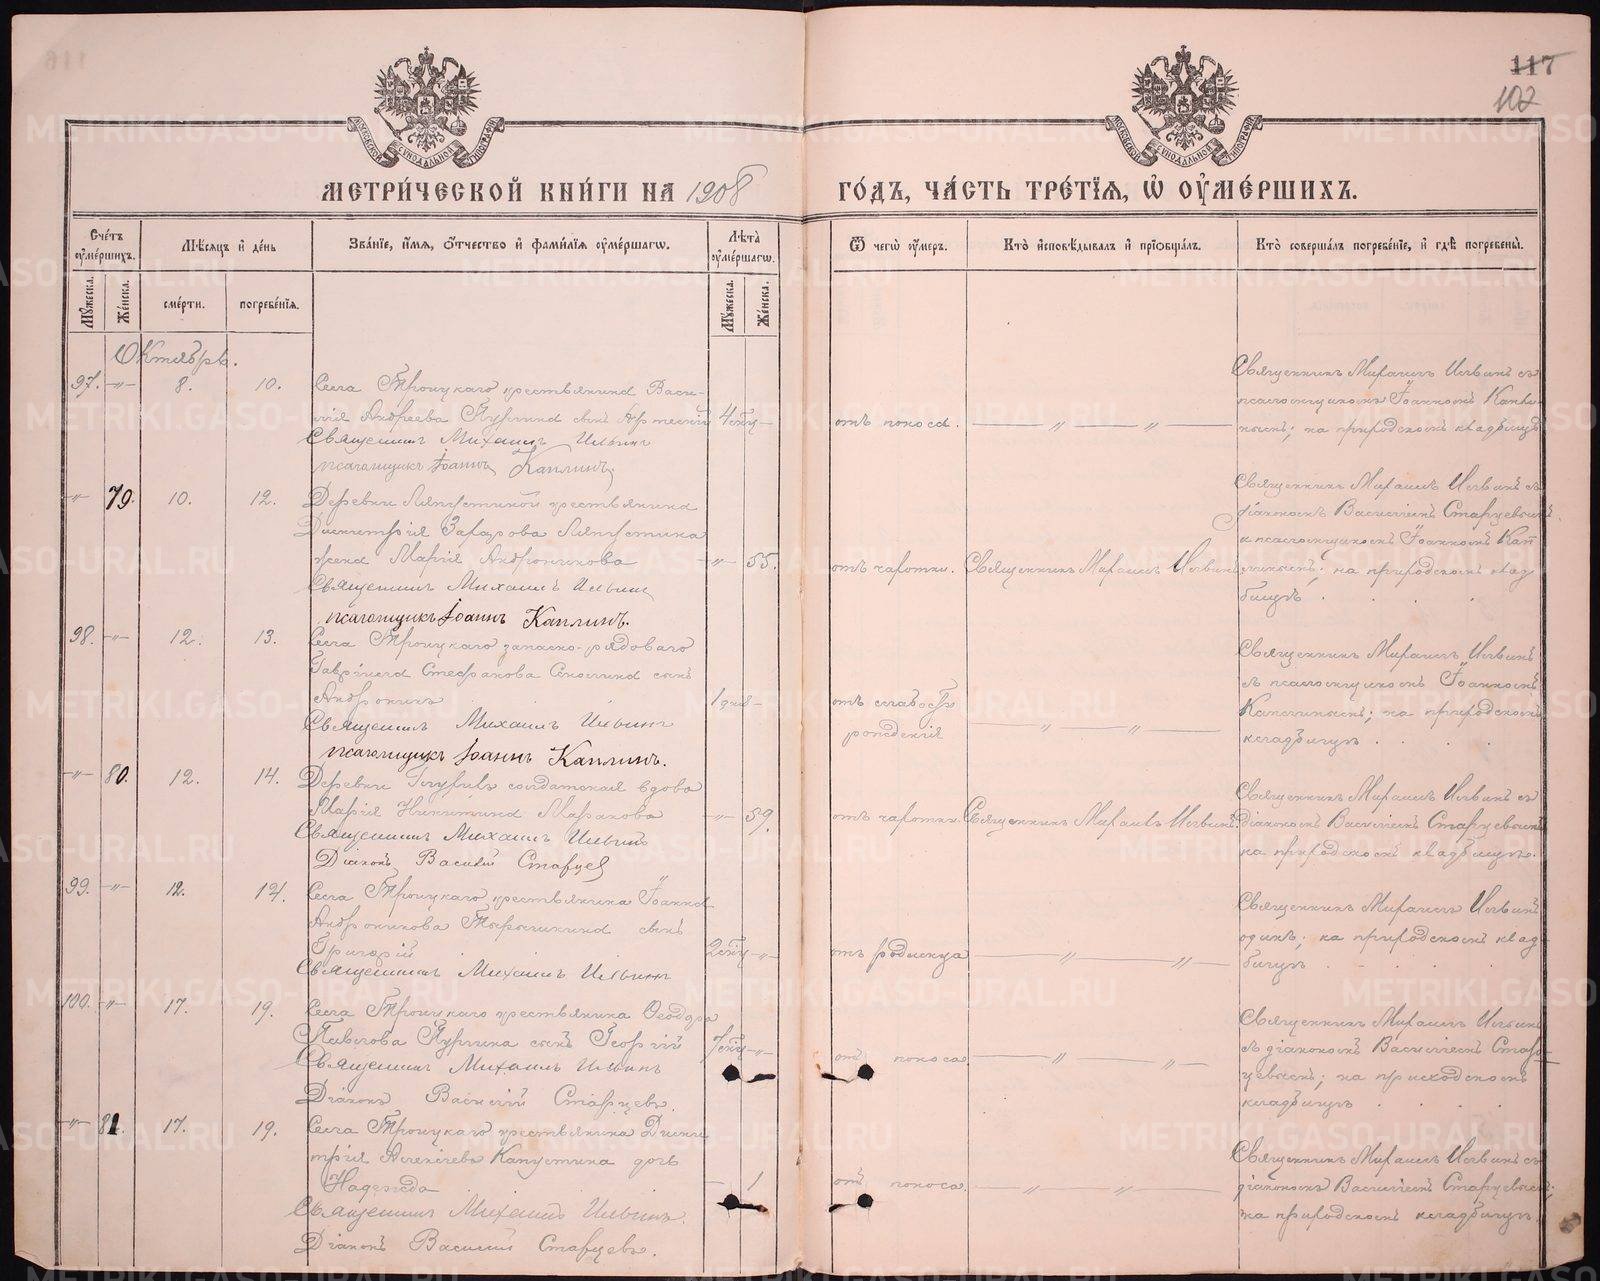 117
102
МЕТРИ́ЧЕСКОЙ КНИ́ГИ НА 1908 ГО́ДЪ, ЧА́СТЬ ТРЕ́ТІѦ, Ѡ ОУМЕ́РШИХЪ.
Сче́тъ оуме́ршихъ.
Му́жеска.
Же́нска.
Мѣ́сяцъ и де́нь
сме́рти.
погребе́нія.
Зва́ніе, и́мя, о́тчество и фами́лія оуме́ршагѡ.
Лѣ́та оуме́ршагѡ.
Му́жеска.
Же́нска.
Ѿ чегѡ̀ оу́меръ.
Кто̀ исповѣ́дывалъ и пріѡбща́лъ.
Кто̀ соверша́лъ погребе́ніе, и гдѣ̀ погребены̀.
Октябрь.
97. —"— 8. 10.
Села Троицкаго крестьянина Васи-
лія Андреева Пургина сынъ Артемій
4 —
отъ поноса. — " — " —
Священникъ Михаилъ Ильинъ
псаломщикъ Іоаннъ Каплинъ.
Священникъ Михаилъ Ильинъ съ
псаломщикомъ Іоанномъ Капли-
нымъ; на приходскомъ кладбищѣ
—"— 79. 10. 12.
Деревни Ляпустиной крестьянина
Димитрія Захарова Ляпустина
жена Марія Андроникова
—"— 55.
отъ чахотки. Священникъ Михаилъ Ильинъ
Священникъ Михаилъ Ильинъ
псаломщикъ Іоаннъ Каплинъ.
Священникъ Михаилъ Ильинъ съ
діакономъ Василіемъ Старцевымъ
и псаломщикомъ Іоанномъ Кап-
линымъ; на приходскомъ клад-
бищѣ . . . .
98. —"— 12. 13.
Села Троицкаго запасно-рядоваго
Гавріила Стефанова сынъ
Андроникъ
1 дня —
отъ слабости
рожденія — " — " —
Священникъ Михаилъ Ильинъ
псаломщикъ Іоаннъ Каплинъ.
Священникъ Михаилъ Ильинъ
съ псаломщикомъ Іоанномъ
Каплинымъ; на приходскомъ
кладбищѣ . . . .
—"— 80. 12. 14.
Деревни солдатская вдова
Марія Никитина
—"— 89.
отъ чахотки. Священникъ Михаилъ Ильинъ.
Священникъ Михаилъ Ильинъ
Діаконъ Василій Старцевъ
Священникъ Михаилъ Ильинъ съ
діакономъ Василіемъ Старцевымъ
на приходскомъ кладбищѣ.
99. —"— 12. 14.
Села Троицкаго крестьянина Іоанна
Андроникова сынъ
Григорій
2 —"—
отъ родимца — " — " —
Священникъ Михаилъ Ильинъ
Священникъ Михаилъ Ильинъ
одинъ; на приходскомъ клад-
бищѣ . . . .
100. —"— 17. 19.
Села Троицкаго крестьянина Ѳеодора
Павлова Пургина сынъ Георгій
7 —"—
отъ поноса — " — " —
Священникъ Михаилъ Ильинъ
Діаконъ Василій Старцевъ.
Священникъ Михаилъ Ильинъ
съ діакономъ Василіемъ Стар-
цевымъ; на приходскомъ
кладбищѣ . . . .
—"— 81. 17. 19.
Села Троицкаго крестьянина Дими-
трія Алексѣева Капустина дочь
Надежда
— 1
отъ поноса. — " — " —
Священникъ Михаилъ Ильинъ.
Діаконъ Василій Старцевъ.
Священникъ Михаилъ Ильинъ съ
діакономъ Василіемъ Старцевымъ;
на приходскомъ кладбищѣ.
METRIKI.GASO-URAL.RU